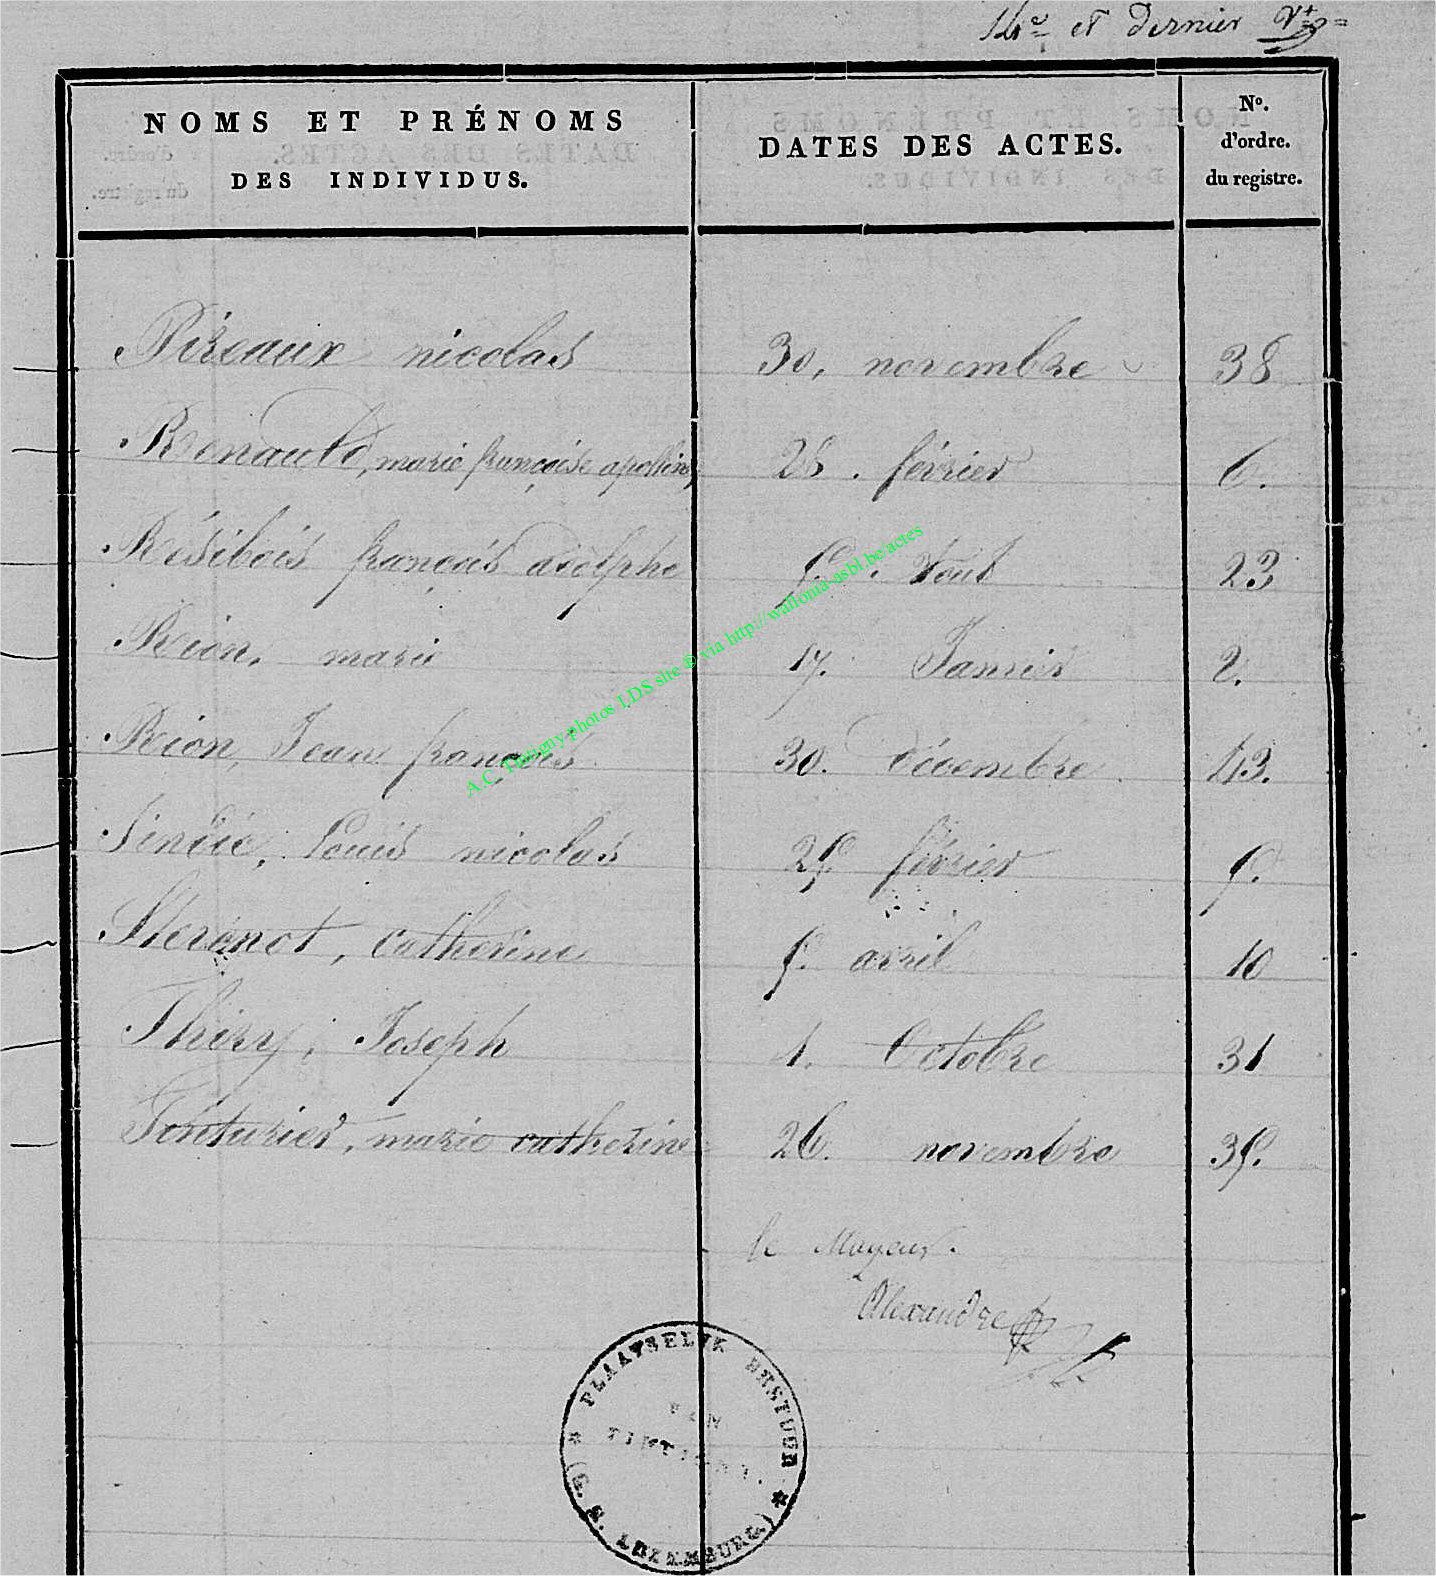 14e et Dernier
NOMS ET PRÉNOMS
DES INDIVIDUS.
DATES DES ACTES.
No.
d'ordre.
du registre.
Pireaux nicolas 30, novembre 38
Renauld, marie françoise apolline 28. février 6.
Résibois françois adolphe 5. Aout 23
Rion, marie 17. Janvier 2.
Rion, Jean françois 30. Décembre 43.
Sindic, Louis nicolas 25 février 5.
Stevenot, catherine 5. avril 10
Thiry, Joseph 1. Octobre 31
Tinturier, marie catherine 26. novembre 35.
le Mayeur.
Alexandre
PLAATSELIJK BESTUUR
VAN
TINTIGNY.
(G. H. LUXEMBURG)
A.C. Tintigny photos LDS site © via http://wallonia-asbl.be/actes